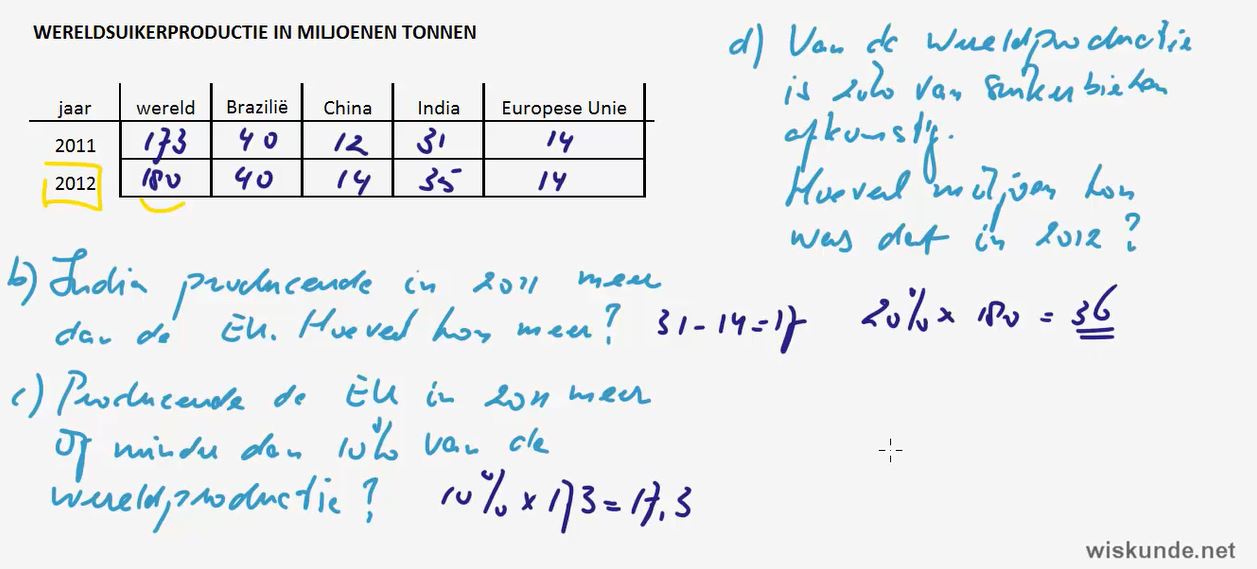 WERELDSUIKERPRODUCTIE IN MILJOENEN TONNEN
jaar wereld Brazilië China India Europese Unie
2011 173 40 12 31 14
2012 180 40 14 35 14
b) India produceerde in 2011 meer
dan de EU. Hoeveel ton meer? 31 - 14 = 17
c) Produceerde de EU in 2011 meer
of minder dan 10% van de
wereldproductie? 10% × 173 = 17,3
d) Van de wereldproductie
is 20% van suikerbieten
afkomstig.
Hoeveel miljoen ton
was dat in 2012?
20% × 180 = 36
wiskunde.net